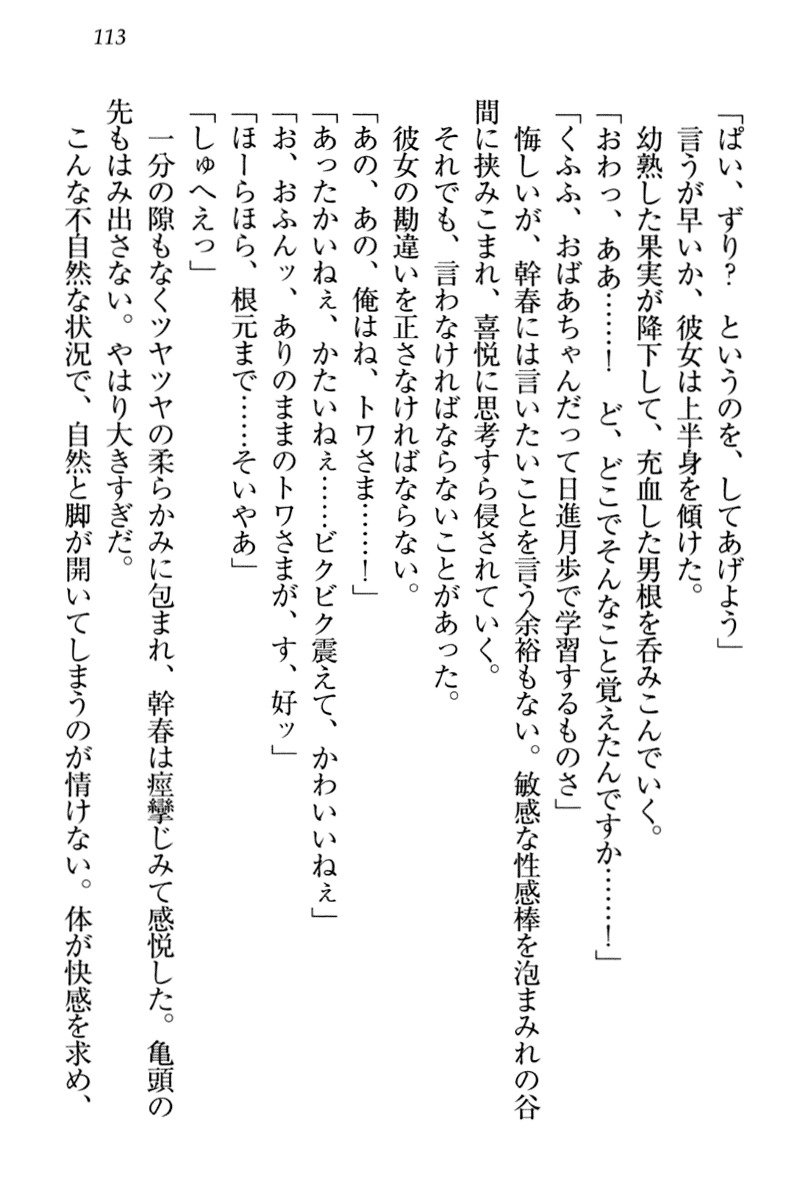 113
「ぱい、ずり？　というのを、してあげよう」
言うが早いか、彼女は上半身を傾けた。
幼熟した果実が降下して、充血した男根を呑みこんでいく。
「おわっ、ああ……！　ど、どこでそんなこと覚えたんですか……！」
「くふふ、おばあちゃんだって日進月歩で学習するものさ」
悔しいが、幹春には言いたいことを言う余裕もない。敏感な性感棒を泡まみれの谷
間に挟みこまれ、喜悦に思考すら侵されていく。
それでも、言わなければならないことがあった。
彼女の勘違いを正さなければならない。
「あの、あの、俺はね、トワさま……！」
「あったかいねぇ、かたいねぇ……ビクビク震えて、かわいいねぇ」
「お、おふんッ、ありのままのトワさまが、す、好ッ」
「ほーらほら、根元まで……そいやあ」
「しゅへえっ」
一分の隙もなくツヤツヤの柔らかみに包まれ、幹春は痙攣じみて感悦した。亀頭の
先もはみ出さない。やはり大きすぎだ。
こんな不自然な状況で、自然と脚が開いてしまうのが情けない。体が快感を求め、